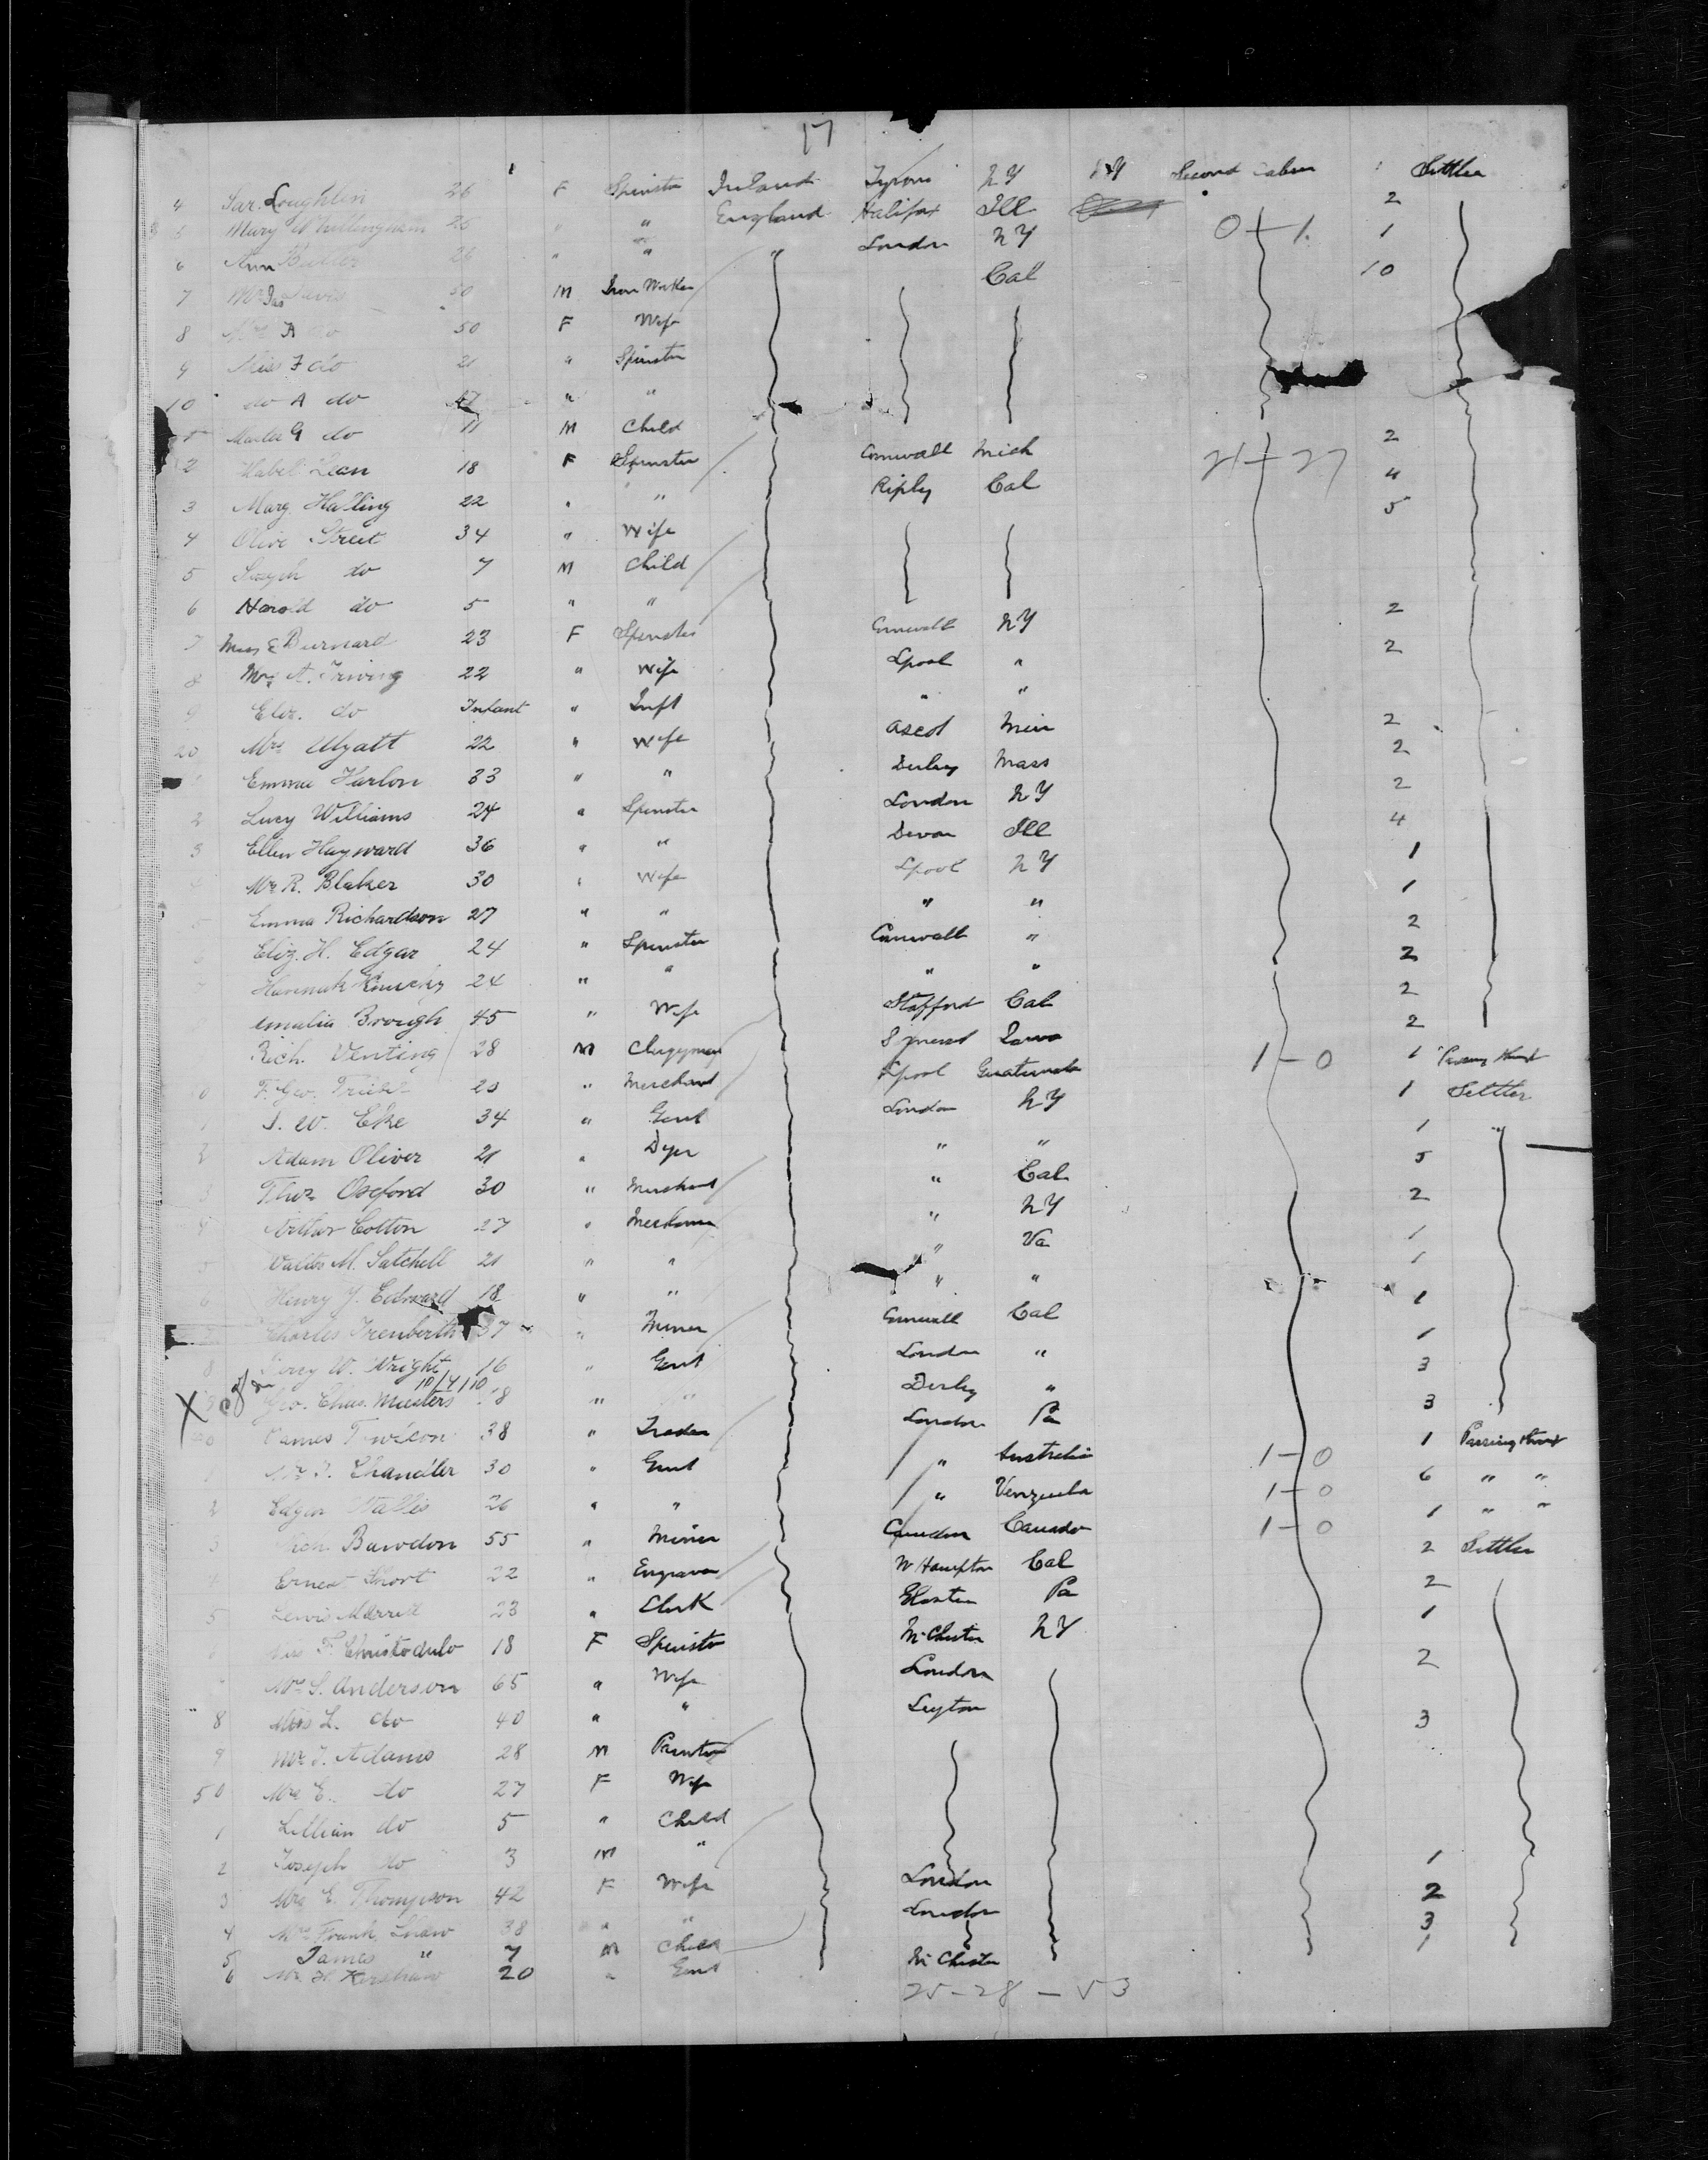 17
4 Sar. Loughlin 26 F Spinster Ireland Tyrone NY NY Second Cabin Settler
5 Mary Whillingham 25 " " England Halifax Ill 2
6 Ann Butler 26 " " " London NY 0-1 1
7 Mr Jas Davis 50 M Iron Worker Cal 10
8 Mrs A do 50 F Wife
9 Miss F do 21 " Spinster
10 do A do 17 " "
Master G do 11 M Child
2 Mabel Lean 18 F Spinster Cornwall Mich 2
3 Marg. Halling 22 " " Ripley Cal 21-27 4
4 Olive Street 34 " Wife 5
5 Joseph do 7 M Child
6 Harold do 5 " "
7 Miss E Burnard 23 F Spinster Cornwall NY 2
8 Mrs A. Irving 22 " Wife Lpool " 2
9 Eliz. do Infant " Inft " "
20 Mrs Wyatt 22 " Wife Ascot Min 2
Emma Harlon 33 " " Derby Mass 2
2 Lucy Williams 24 " Spinster London NY 2
3 Ellen Hayward 36 " " Devon Ill 4
Mrs R. Blaker 30 " Wife Lpool NY 1
Emma Richardson 27 " " " " 1
Eliz. H. Edgar 24 " Spinster Cornwall " 2
Hannah 24 " " " " 2
Amalia Brough 45 " Wife Stafford Cal 2
Rich. Venting 28 M Clergyman Iowa 2
F. Geo. " Merchant Lpool Guatemala 1-0 1 Passing thro
J. W. Eke 34 " Gent London NY 1 Settler
2 Adam Oliver 21 " Dyer " " 1 "
3 Thos Oxford 30 " Merchant " Cal 5
Arthur Cotton 27 " " NY 2
Walter M. Satchell 21 " " " Va 1
Henry J. Edward 18 " " " " 1
Charles Trenberth 37 " Miner Cornwall Cal 1
Percy W. Wright 16 " Gent London " 1
X 10/4/10
Geo. Chas. Musters 18 " " Derby " 3
James T. 38 " Trader London Pa 3
Mr J. Chandler 30 " Gent " Australia 1-0 1 Passing thro
2 Edgar Wallis 26 " " " Venzuela 1-0 6 " "
3 Rich. Bawdon 55 " Miner Camdon Canada 1-0 1 " "
Ernest Short 22 " Engraver W Hampton Cal 2 Settler
5 Lewis Merrill 23 " Clerk Pa 2
Miss F. Christodulo 18 F Spinster M'Chester NY 1
Mrs S. Anderson 65 " Wife London 2
8 Miss L. do 40 " " Leyton
9 Mr J. Adams 28 M Painter 3
50 Mrs E. do 27 F Wife
1 Lillian do 5 " Child
2 Joseph do 3 M "
3 Mrs E. Thompson 42 F Wife London 1
4 Mrs Frank Snow 38 " " London 2
5 James " 7 M Child 3
6 Mr H. Kershaw 20 " Gent M'Chester 1
25-28-53